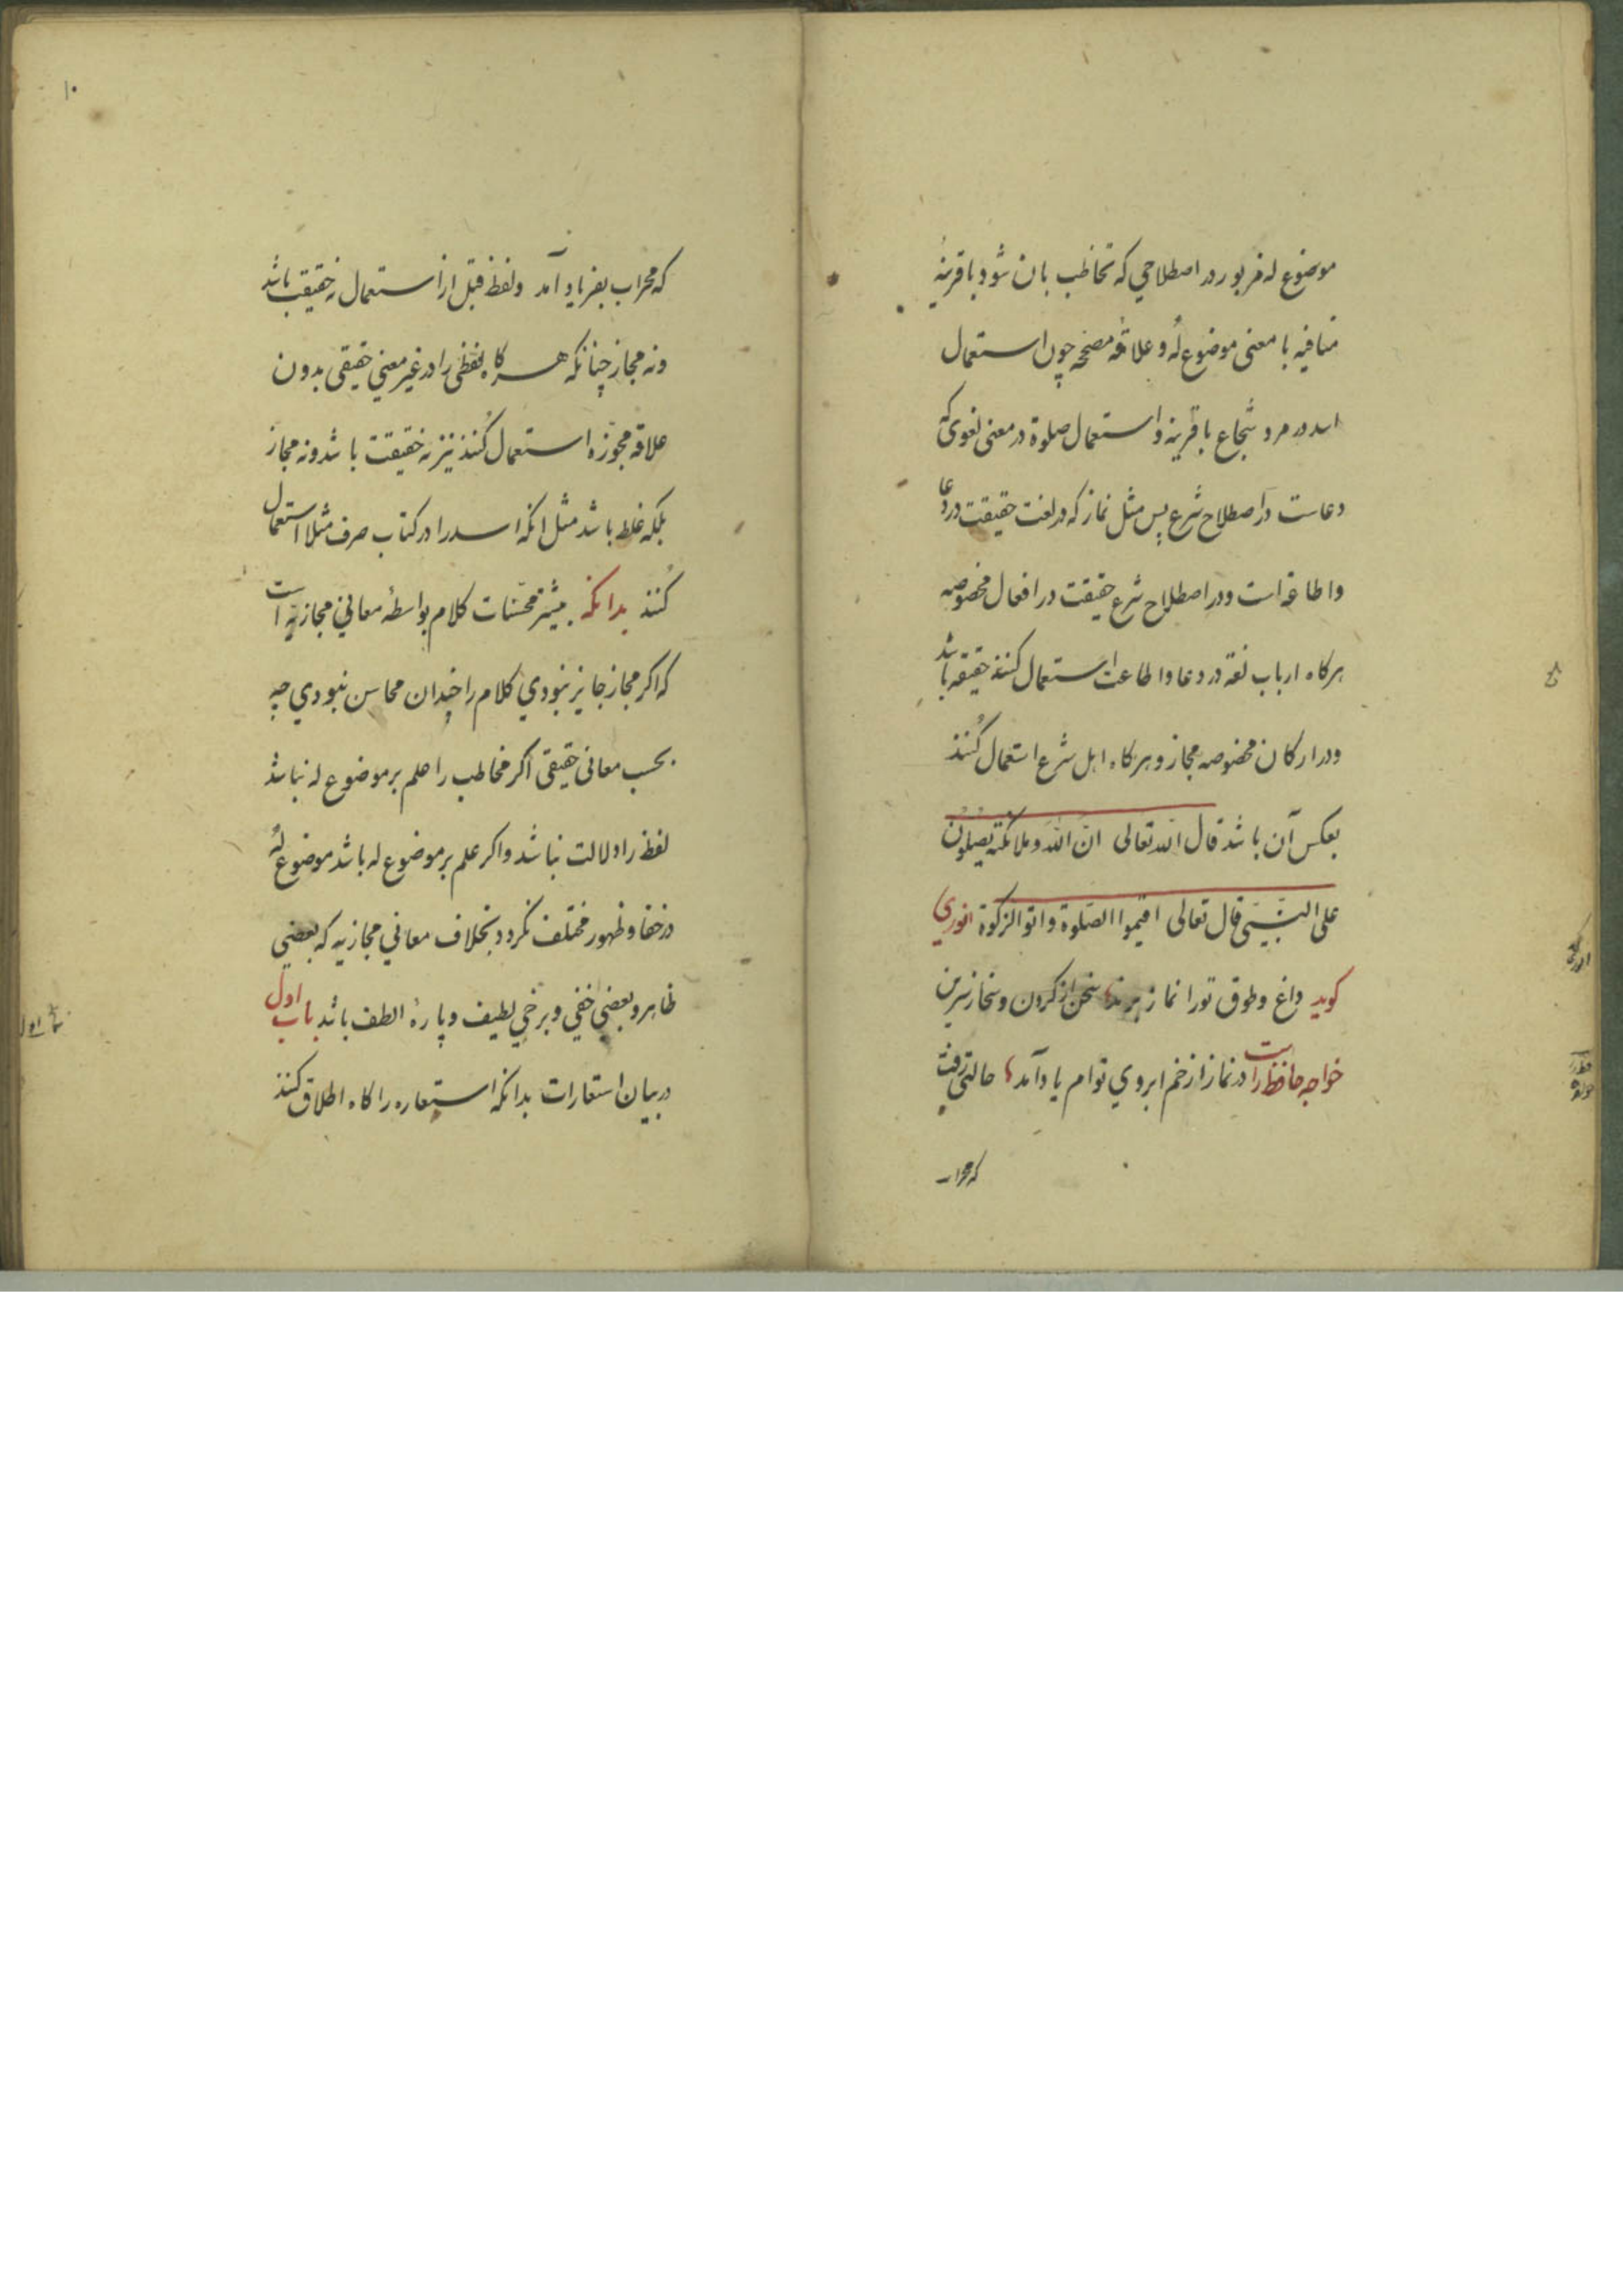 موضوع له مزبور در اصطلاحي که تخاطب بان شود با قرینهٔ
منافیه با معنی موضوع لهُ و علاقهٔ مصححه چون استعمال
اسد در مرد شجاع با قرینه و استعمال صلوة در معنی لغوی که
دعاست در اصطلاح شرع پس مثل نماز که در لغت حقیقت در دعا
واطاعة است ودر اصطلاح شرع حقیقت در افعال مخصوصه
هرکاه ارباب لغة در دعا واطاعت استعمال کنند حقیقه باشد
ودر ارکان مخصوصه مجاز و هرکاه اهل شرع استعمال کُنند
بعکس آن باشد قال الله تعالی انّ اللّه وملائکته یصلّون
علی النّبیّ قال تعالی اقیموا الصّلوة واتوا الزکوة انوري
کوید داغ وطوق تورا نماز برند سخن از کردن وسخا ز سرین
خواجه حافظ راست در نماز از خم ابروي توام یاد آمد حالتی رفت
که محراب
۱۰
که محراب بفریاد آمد ولفظ قبل از استعمال نه حقیقت باشد
ونه مجاز چنانکه هرکاه لفظی را در غیر معني حقیقی بدون
علاقه مجوّزه استعمال کُنند نیز نه حقیقت باشد ونه مجاز
بلکه غلط باشد مثل انکه اسد را در کتاب صرف مثلا استعمال
کُنند بدانکه بیشتر محسّنات کلام بواسطهٔ معاني مجازیّه است
که اکر مجاز جایز نبودي کلام را چندان محاسن نبودي چه
بحسب معانی حقیقی اکر مخاطب را علم بر موضوع له نباشد
لفظ را دلالت نباشد واکر علم بر موضوع له باشد موضوع لهُ
در خفا وظهور مختلف نکردد بخلاف معاني مجازیه که بعضي
ظاهر و بعضي خفي وبرخي لطیف وپارهٔ الطف باشد باب اول
در بیان استعارات بدانکه استعاره را کاه اطلاق کنند